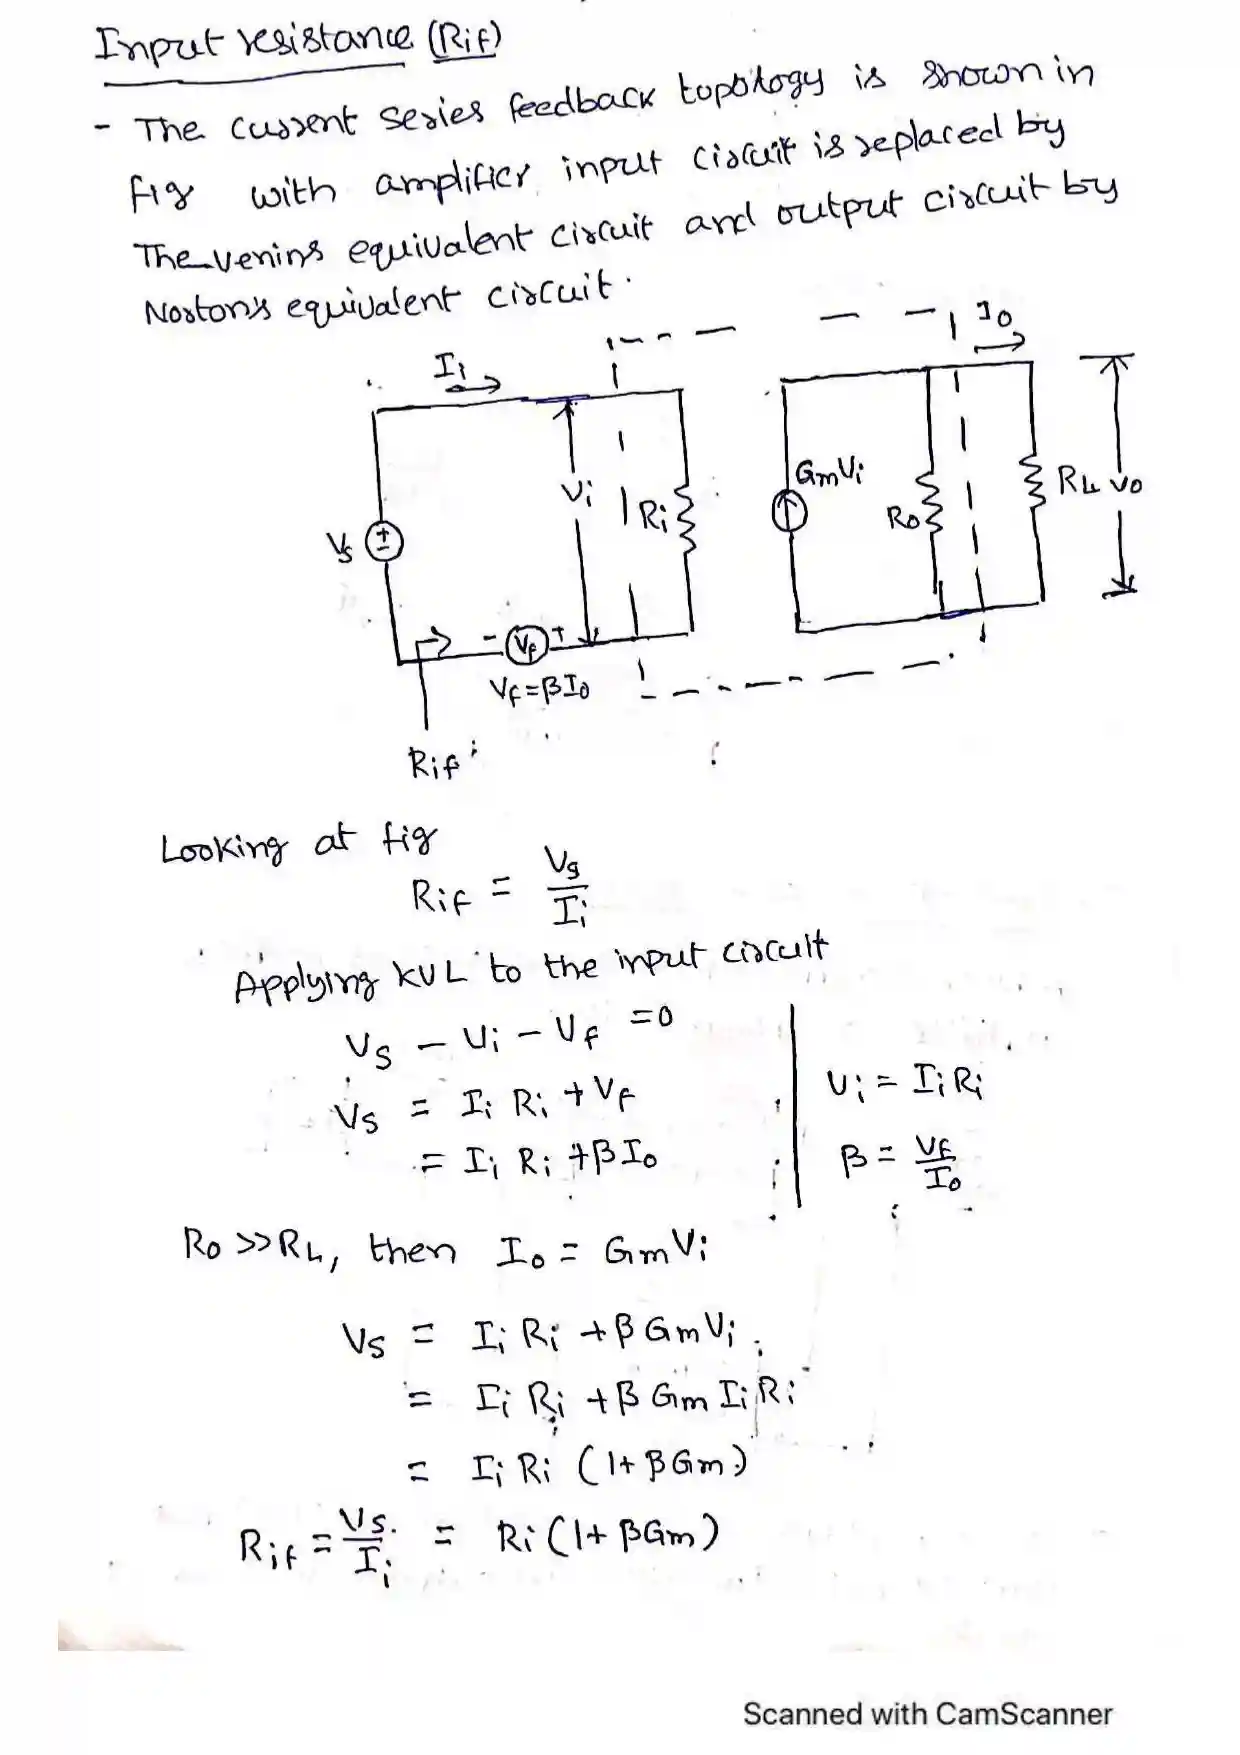 Input resistance (Rif)
- The current series feedback topology is shown in
fig with amplifier input circuit is replaced by
Thevenins equivalent circuit and output circuit by
Norton's equivalent circuit.
Ii
Io
Vs
Vi
Ri
GmVi
Ro
RL
Vo
- Vf +
Vf = βIo
Rif
Looking at fig
Rif = Vs/Ii
Applying KVL to the input circuit
Vs - Vi - Vf = 0
Vs = Ii Ri + Vf
= Ii Ri + βIo
Vi = Ii Ri
β = Vf/Io
Ro >> RL, then Io = GmVi
Vs = Ii Ri + β Gm Vi
= Ii Ri + β Gm Ii Ri
= Ii Ri (1 + βGm)
Rif = Vs/Ii = Ri (1 + βGm)
Scanned with CamScanner